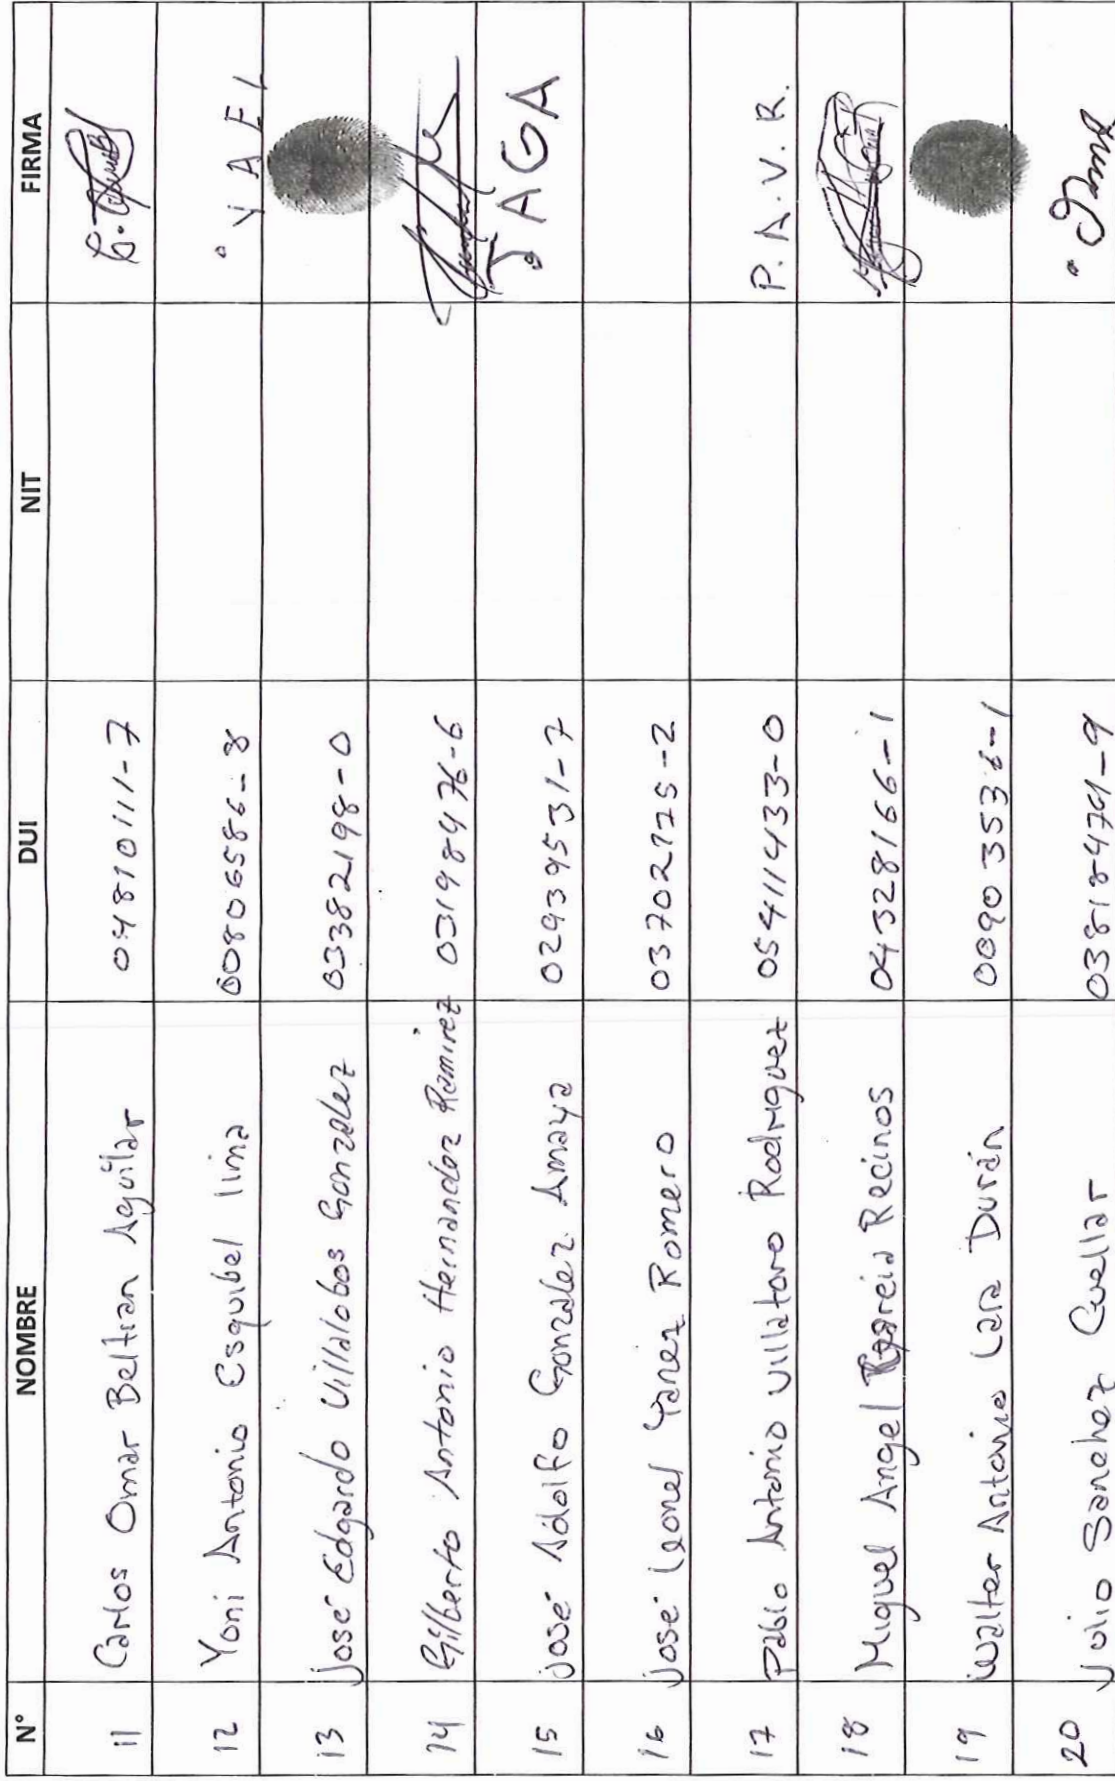 N° NOMBRE DUI NIT FIRMA
11 Carlos Omar Beltran Aguilar 04810111-7
12 Yoni Antonio Esquibel lima 00806586-8 Y A E L
13 José Edgardo Villalobos Gonzalez 03382198-0
14 Gilberto Antonio Hernandez Ramirez 03198476-6
15 José Adolfo Gonzalez Amaya 02939531-7 JAGA
16 José Leonel Yanez Romero 03702775-2
17 Pablo Antonio Villatoro Rodriguez 05411433-0 P.A.V.R.
18 Miguel Angel Recinos 04328166-1
19 Walter Antonio Lara Durán -1
20 Julio Sanchez Cuellar 03818479-9